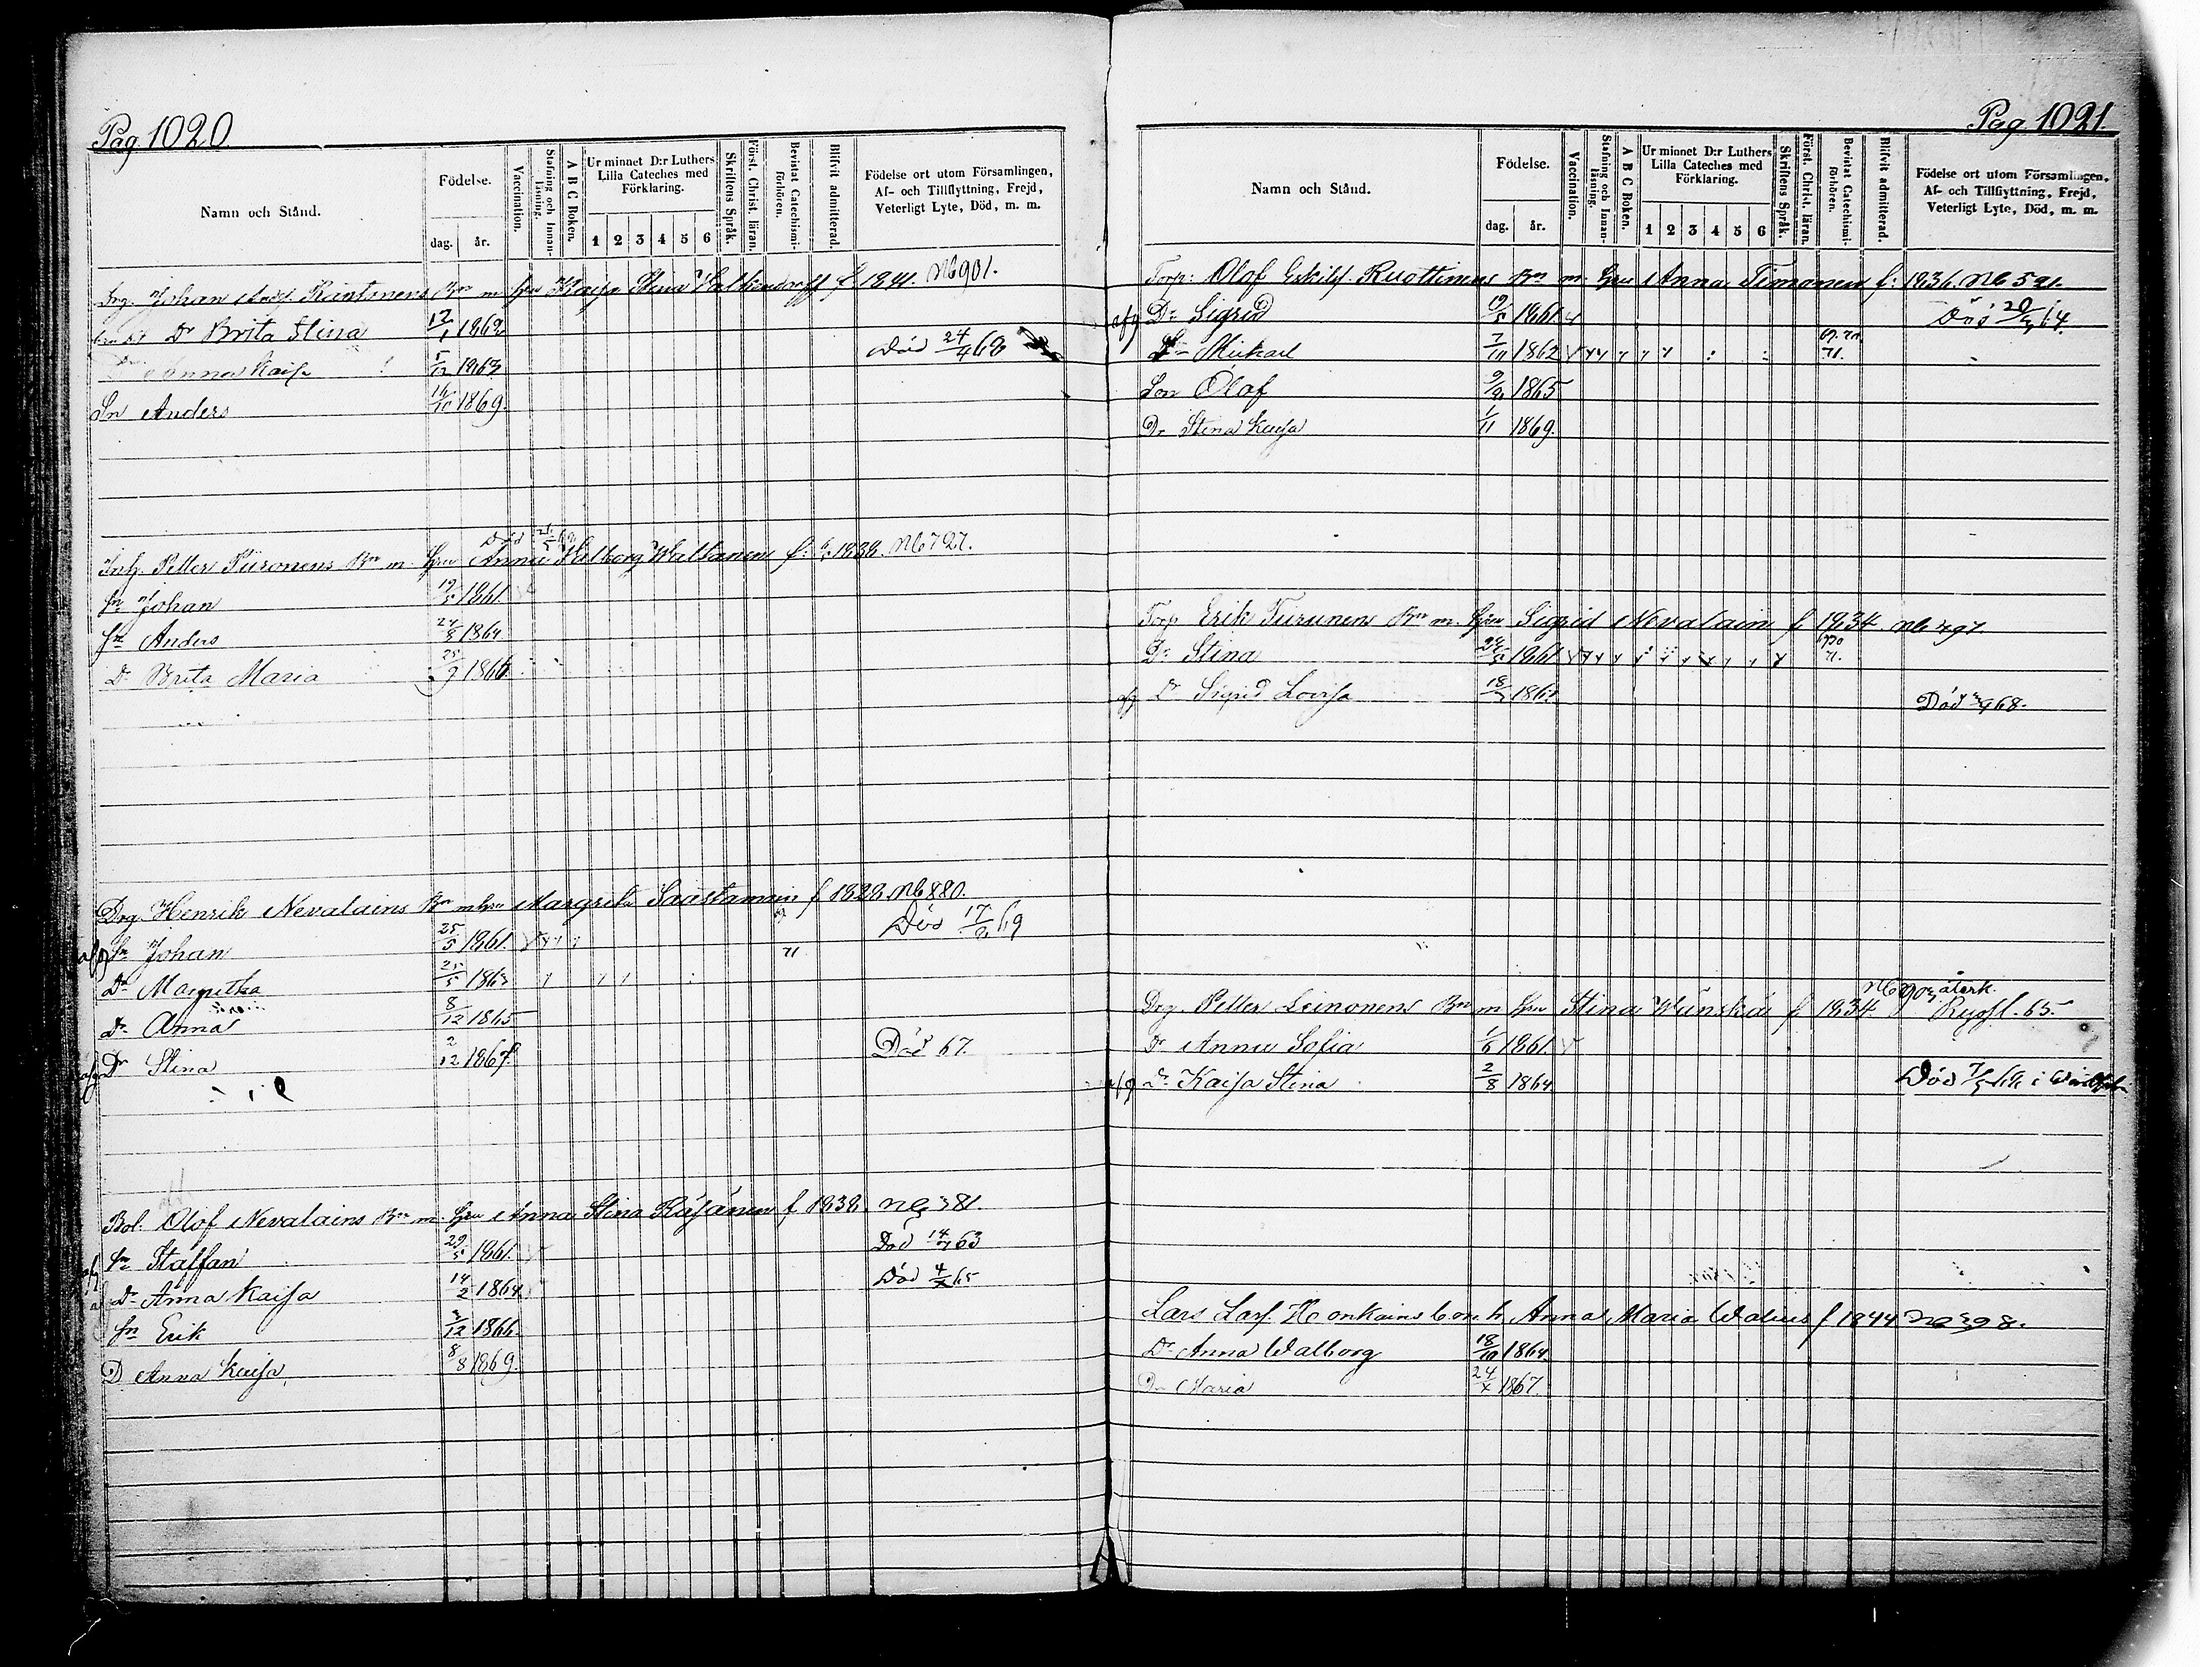 Pag. 1020.
Namn och Stånd.
Födelse.
dag. år.
Vaccination.
Stafning och Innanläsning.
A B C Boken.
Ur minnet D:r Luthers Lilla Cateches med Förklaring.
1 2 3 4 5 6
Skriftens Språk.
Först. Christ. läran.
Bevistat Catechismiförhören.
Blifvit admitterad.
Födelse ort utom Församlingen, Af- och Tillflyttning, Frejd, Veterligt Lyte, Död, m. m.
Johan Br m hru Kaisa Stina f 1841. No 901.
Dr Brita Stina 17/1 1862
Anna Kaisa 5/12 1863 Död 24/4 68
Sn Anders 1869.
Inh. Petter Piironens Br m hru Anna Walborg Waltanen f: 1838. No 727.
Sn Johan 19/5 1861
Sn Anders 24/8 1864
Dr Brita Maria 25/9 1866
Drg. Henrik Nevalains Br m hru Margreta Saastamoin f 1828 No 880.
afg Sn Johan 25/5 1861. 71 Död 17/2 69
Dr Margretha 25/5 1863
Dr Anna 8/12 1865
afg Dr Stina 2/12 1867. Död 67.
Bol. Olof Nevalains Br m. hru Anna Stina Räsänen f 1838. No 381.
afg Sn Staffan 29/5 1861. Död 14/7 63
af Dr Anna Kaisa 14/2 1864 Död 4/x 65
Sn Erik 3/12 1866.
D Anna Kaisa, 8/8 1869.
Pag. 1021.
Namn och Stånd.
Födelse.
dag. år.
Vaccination.
Stafning och Innanläsning.
A B C Boken.
Ur minnet D:r Luthers Lilla Cateches med Förklaring.
1 2 3 4 5 6
Skriftens Språk.
Först. Christ. läran.
Bevistat Catechismiförhören.
Blifvit admitterad.
Födelse ort utom Församlingen, Af- och Tillflyttning, Frejd, Veterligt Lyte, Död, m. m.
Torp: Olof Eskilss. Ruottinens Br m. hru Anna Timonen f: 1836. No 521.
afg Dr Sigrid 19/5 1861 Död 64.
Mickael 7/10 1862 69. 70 71.
Son Olof 1865
Dr Stina Kaisa 1/11 1869.
Torp Erik Turunens Br m. hru Sigrid Nevalain f 1834. No 797.
Dr Stina 1861 71.
afg Dr Sigrid Lovisa 1864. Död 68.
Drg. Petter Leinonens Br m hru Stina Wänskä f 1834 No 903 återk. Ryssl. 65.
Dr Anna Sofia 1/6 1861.
afg Dr Kaisa Stina 2/8 1864 Död i
Lars Larss. Honkains Anna Maria Walius f 1844 No 398.
Dr Anna Walborg 18/10 1864.
Dr Maria 24/x 1867